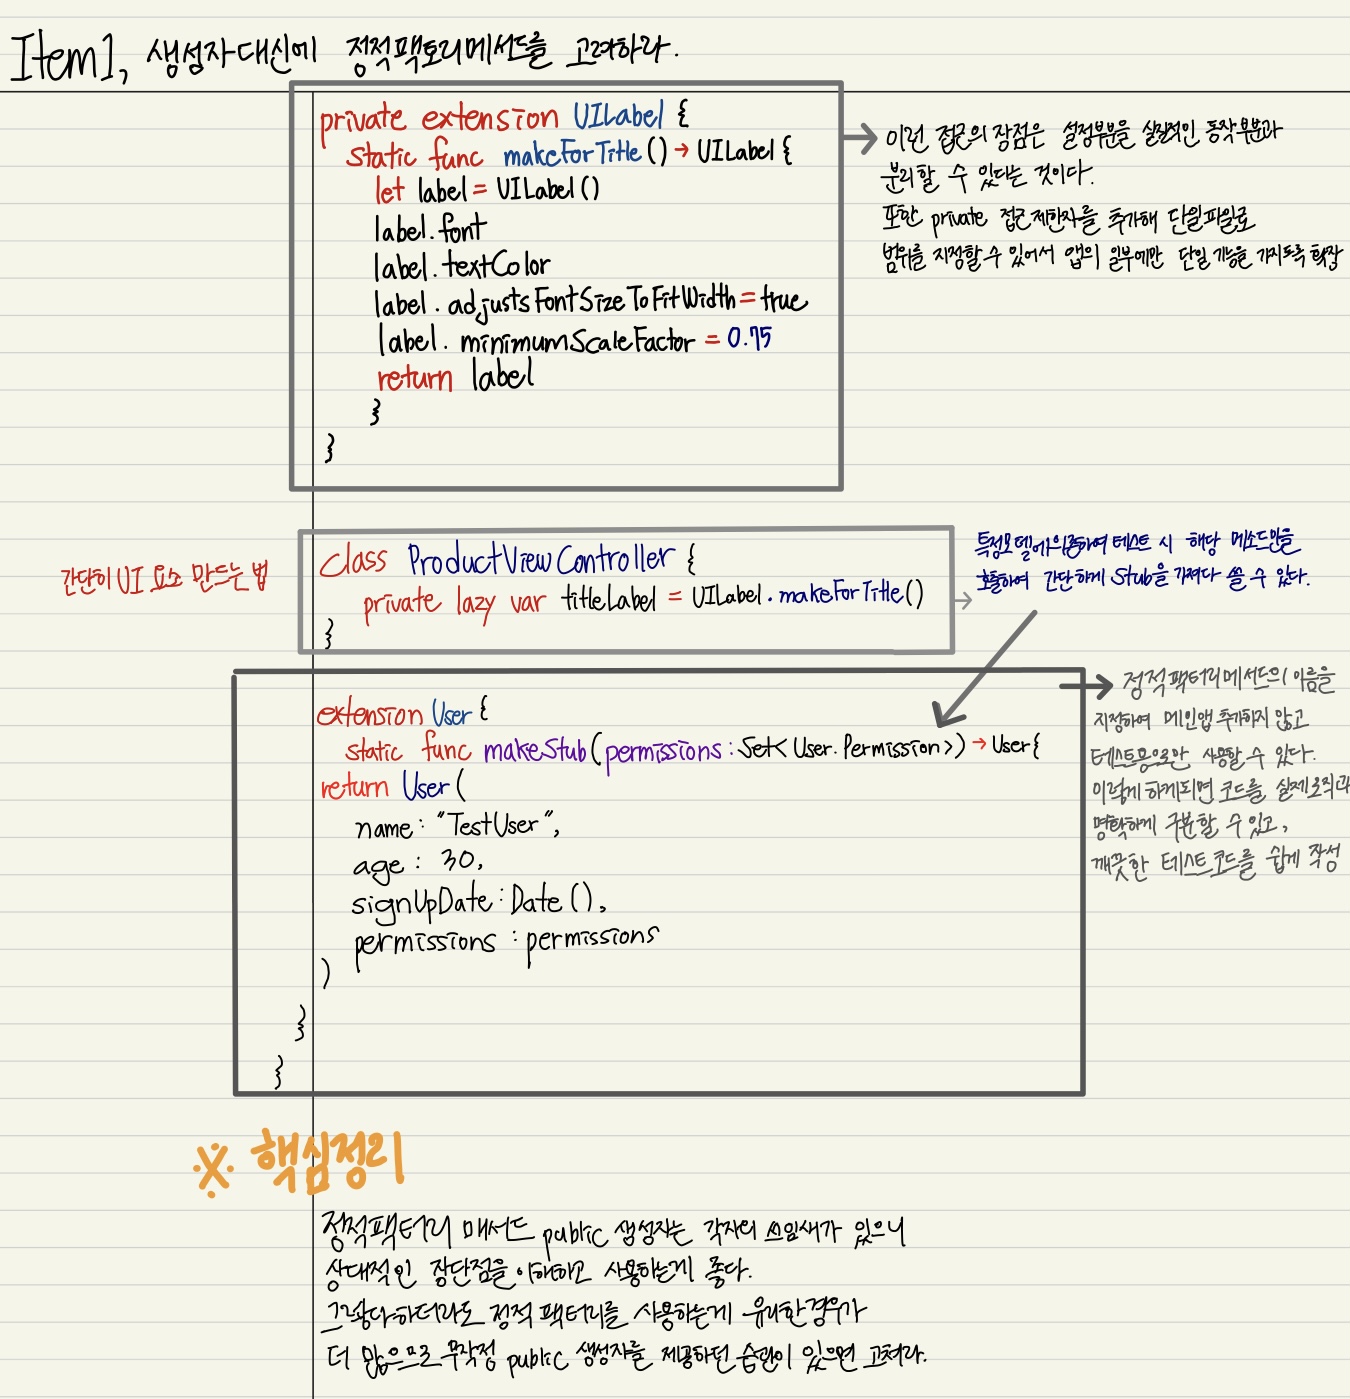 Item1, 생성자 대신에 정적팩토리메서드를 고려하라.
private extension UILabel {
static func makeForTitle() → UILabel {
let label = UILabel()
label.font
label.textColor
label.adjustsFontSizeToFitWidth = true
label.minimumScaleFactor = 0.75
return label
}
}
→ 이런 접근의 장점은 설정부분을 실질적인 동작부분과
분리할 수 있다는 것이다.
또한 private 접근제한자를 추가해 단일파일로
범위를 지정할 수 있어서 앱의 일부에만 단일 기능을 가지도록 확장
간단히 UI 요소 만드는 법
class ProductViewController {
private lazy var titleLabel = UILabel.makeForTitle()
}
→ 특정모델에 의존하여 테스트 시 해당 메소드만을
호출하여 간단하게 Stub을 가져다 쓸 수 있다.
extension User {
static func makeStub(permissions: Set<User.Permission>) → User {
return User(
name: "TestUser",
age: 30,
signUpDate: Date(),
permissions: permissions
)
}
}
→ 정적팩터리메서드의 이름을
지정하여 메인앱 추가하지 않고
테스트용으로만 사용할 수 있다.
이렇게 하게되면 코드를 실제로직과
명확하게 구분할 수 있고,
깨끗한 테스트코드를 쉽게 작성
※ 핵심정리
정적팩터리 매서드 public 생성자는 각자의 쓰임새가 있으니
상대적인 장단점을 이해하고 사용하는게 좋다.
그렇다하더라도 정적 팩터리를 사용하는게 유리한 경우가
더 많으므로 무작정 public 생성자를 제공하던 습관이 있으면 고쳐라.